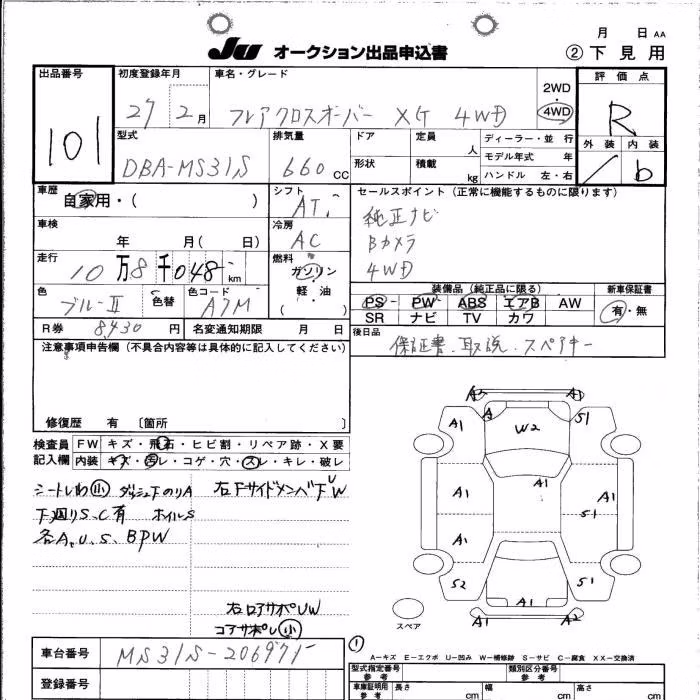 JU オークション出品申込書
月 日 AA
② 下見用
出品番号 初度登録年月 車名・グレード
27 2月 フレアクロスオーバー XG 4WD
2WD
4WD
評価点
R
101
型式 排気量 ドア 定員 人 ディーラー・並 行
モデル年式 年
外装 内装
DBA-MS31S 660 CC 形状 積載 kg ハンドル 左・右
/ b
車歴 シフト セールスポイント(正常に機能するものに限ります)
自家用・( ) AT
純正ナビ
車検 冷房
年 月( 日) AC
Bカメラ
走行 燃料
4WD
10万8千048km ガソリン
軽・油
( )
装備品(純正品に限る) 新車保証書
色 色替 色コード
ブルーⅡ A7M
PS PW ABS エアB AW
有・無
SR ナビ TV カワ
R券 8430円 名変通知期限 月 日
後日品
保証書、取説、スペアキー
注意事項申告欄(不具合内容等は具体的に記入してください)
修復歴 有 〔箇所 〕
検査員 FW キズ・飛石・ヒビ割・リペア跡・X要
記入欄 内装 キズ・汚レ・コゲ・穴・スレ・キレ・破レ
シートしわ小 ダッシュ下のりA 右Fサイドメンバ下UW
下廻りS、C有 ホイルS
各A、U、S、BPW
右ロアサポUW
コアサポし小
A1 A1
A1 A S1
W2
A1
A1 A1
S1
A1
S2 S1
A1
A1 A2
スペア
①
A－キズ E－エクボ U－凹み W－補修跡 S－サビ C－腐食 XX－交換済
車台番号 MS31S-206971
登録番号
型式指定番号
参考
類別区分番号
参考
車庫証明用
参考
長さ cm 幅 cm 高さ cm